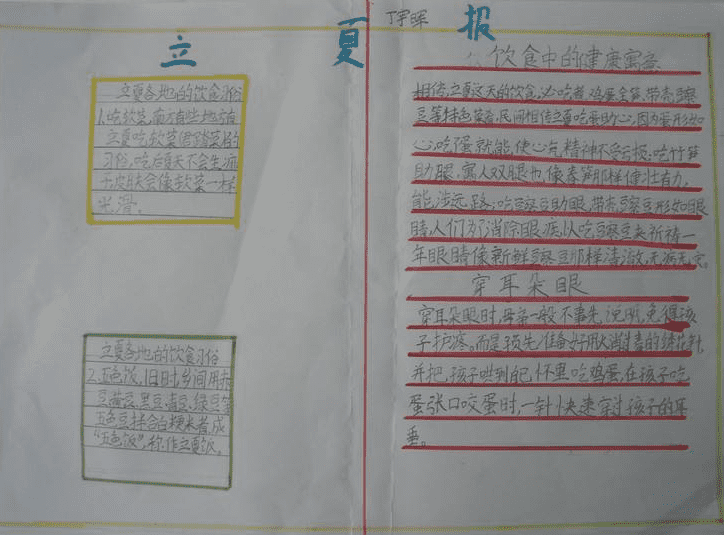 立夏报
丁宇晖
立夏各地的饮食习俗
1.吃软菜,南方有些地方有
立夏吃软菜(君踏菜)的
习俗,吃后夏天不会生痱
子,皮肤会像软菜一样
光滑。
立夏各地的饮食习俗
2.五色饭,旧时,乡间用赤
豆黄豆,黑豆,青豆,绿豆等
五色豆拌合白粳米煮成
“五色饭”,称作立夏饭。
饮食中的健康寓意
相传,立夏这天的饮食,必吃者鸡蛋全笋、带壳豌
豆等特色菜肴,民间相传立夏吃蛋助心,因为蛋形如
心,吃蛋就能使心气精神不受亏损;吃竹笋
助腿,寓人双腿也像春笋那样健壮有力,
能涉远路;吃豌豆助眼,带壳豌豆形如眼
睛,人们为了消除眼疾,以吃豌豆来祈祷一
年眼睛像新鲜豌豆那样清澈,无病无灾。
穿耳朵眼
穿耳朵眼时,母亲一般不事先说明,免得孩
子护疼。而是预先准备好用
并把孩子哄到自怀里吃鸡蛋,在孩子吃
蛋张口咬蛋时,一针快速穿过孩子的耳
垂。